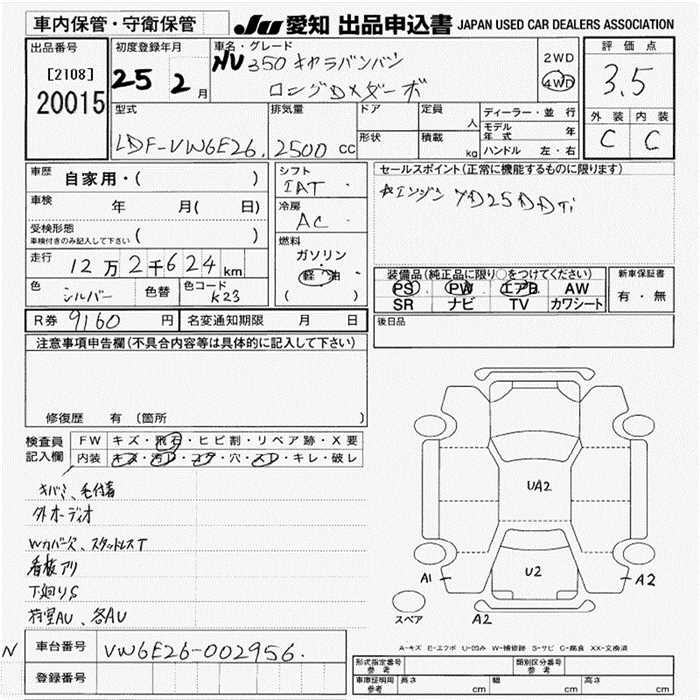 車内保管・守衛保管
JU 愛知 出品申込書 JAPAN USED CAR DEALERS ASSOCIATION
出品番号
[2108]
20015
初度登録年月
25 2 月
車名・グレード
NV350キャラバンバン
ロングDXターボ
2WD
4WD
評価点
3.5
外装 内装
C C
型式
LDF-VW6E26.
排気量
2500 cc
ドア
形状
定員
人
積載
kg
ディーラー・並行
モデル年式 年
ハンドル 左・右
車歴 自家用・( )
車検 年 月( 日)
受検形態
車検付きのみ記入して下さい ( )
走行 12万2千624 km
色 シルバー 色替 色コード K23
シフト
IAT
冷房
AC
燃料
ガソリン
軽油
( )
セールスポイント(正常に機能するものに限ります)
エンジン YD25DDTi
装備品(純正品に限り○をつけてください)
PS PW エアB AW
SR ナビ TV カワシート
新車保証書
有・無
R券 9160 円 名変通知期限 月 日
後日品
注意事項申告欄(不具合内容等は具体的に記入して下さい)
修復歴 有 〔箇所 〕
検査員記入欄
FW キズ・飛石・ヒビ割・リペア跡・X要
内装 キズ・汚レ・コゲ・穴・スレ・キレ・破レ
キバミ、毛付着
外オーディオ
Wカバー欠、スタッドレスT
看板アリ
下廻りS
荷室AU、各AU
UA2
U2
A1
A2
A2
スペア
A-キズ E-エクボ U-凹み W-補修跡 S-サビ C-腐食 XX-交換済
N 車台番号 VW6E26-002956.
登録番号
形式指定番号 参考 類別区分番号 参考
車庫証明用 参考 長さ cm 幅 cm 高さ cm